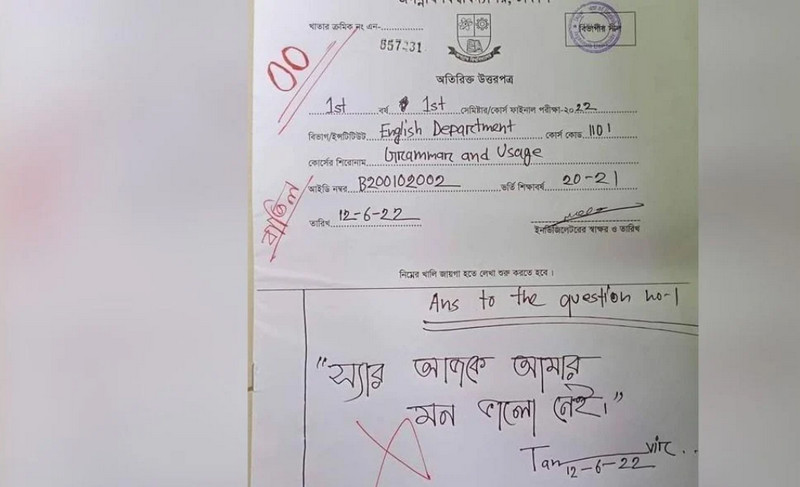 খাতার ক্রমিক নং এন-
657231
বিভাগীয় সীল
00
অতিরিক্ত উত্তরপত্র
1st বর্ষ 1st সেমিষ্টার/কোর্স ফাইনাল পরীক্ষা-২০22
বিভাগ/ইন্সটিটিউট English Department কোর্স কোড 1101
কোর্সের শিরোনাম Grammar and Usage
আইডি নম্বর B200102002 ভর্তি শিক্ষাবর্ষ 20-21
বাতিল
তারিখ 12-6-22
ইনভিজিলেটরের স্বাক্ষর ও তারিখ
নিম্নের খালি জায়গা হতে লেখা শুরু করতে হবে।
Ans to the question no-1
"স্যার আজকে আমার
মন ভালো নেই।"
Tan vir..
12-6-22